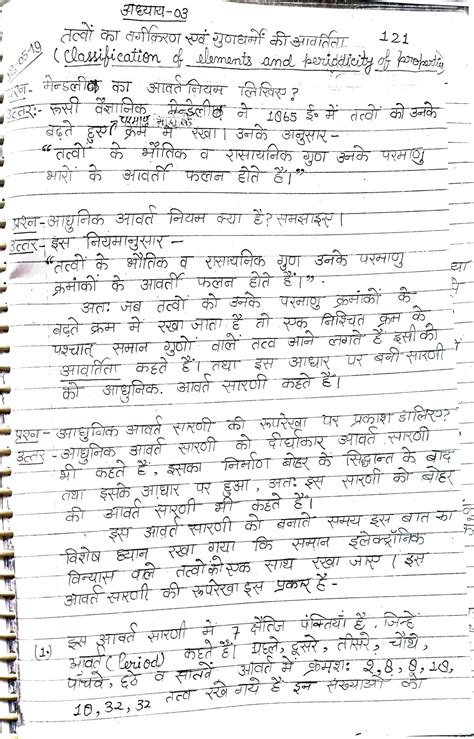 अध्याय-03
तत्वों का वर्गीकरण एवं गुणधर्मों की आवर्तिता 121
(Classification of elements and periodicity of property
-05-19
प्रश्न- मेन्डलीव का आवर्त नियम लिखिए?
उत्तर:- रूसी वैज्ञानिक मेन्डेलीव ने 1865 ई॰ में तत्वों को उनके
परमाणु भारों के
बढ़ते हुए क्रम में रखा। उनके अनुसार-
“तत्वों के भौतिक व रासायनिक गुण उनके परमाणु
भारों के आवर्ती फलन होते हैं।”
प्रश्न- आधुनिक आवर्त नियम क्या है? समझाइए।
उत्तर- इस नियमानुसार -
“तत्वों के भौतिक व रासायनिक गुण उनके परमाणु
क्रमांकों के आवर्ती फलन होते हैं।”.
अतः जब तत्वों को उनके परमाणु क्रमांकों के
बढ़ते क्रम में रखा जाता है तो एक निश्चित क्रम के
पश्चात् समान गुणों वाले तत्व आने लगते हैं इसी को
आवर्तिता कहते हैं। तथा इस आधार पर बनी सारणी
को आधुनिक आवर्त सारणी कहते हैं।
प्रश्न- आधुनिक आवर्त सारणी की रूपरेखा पर प्रकाश डालिए?
उत्तर- आधुनिक आवर्त सारणी को दीर्घाकार आवर्त सारणी
भी कहते हैं, इसका निर्माण बोहर के सिद्धान्त के बाद
तथा इसके आधार पर हुआ, अतः इस सारणी को बोहर
की आवर्त सारणी भी कहते हैं।
इस आवर्त सारणी को बनाते समय इस बात का
विशेष ध्यान रखा गया कि समान इलेक्ट्रॉनिक
विन्यास वाले तत्वों को एक साथ रखा जाए। इस
आवर्त सारणी की रूपरेखा इस प्रकार है-
(1.) इस आवर्त सारणी में 7 क्षैतिज पंक्तियाँ हैं, जिन्हें
आवर्त (Period) कहते हैं। पहले, दूसरे, तीसरे, चौथे,
पांचवे, छठे व सातवें आवर्त में क्रमशः 2,8,8,18,
18, 32, 32 तत्व रखे गये हैं इन संख्याओं को